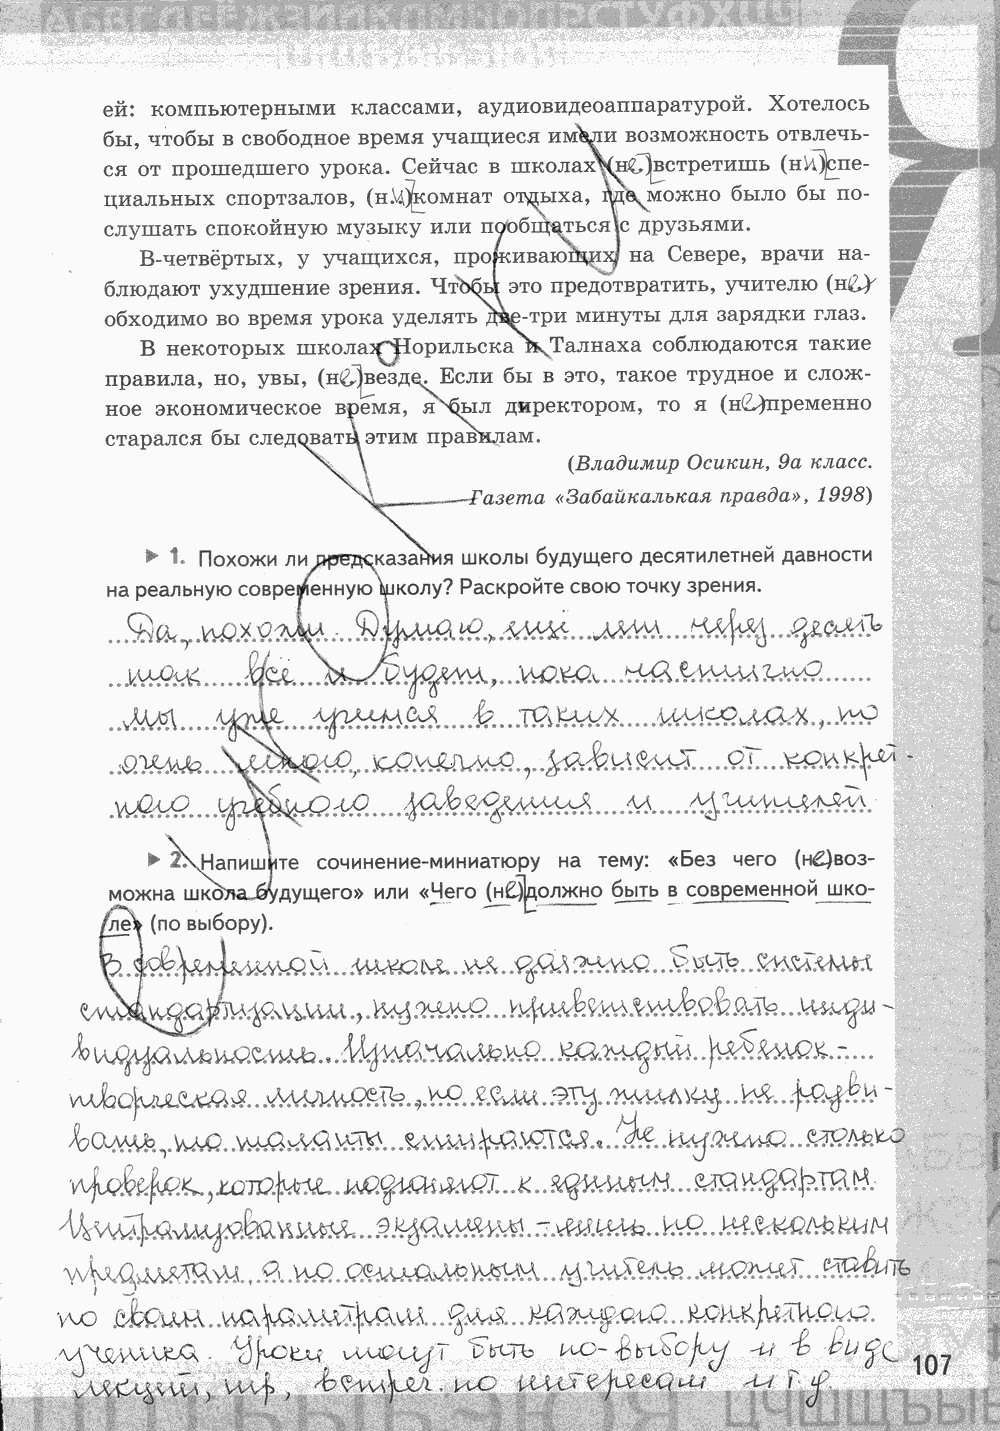 ей: компьютерными классами, аудиовидеоаппаратурой. Хотелось
бы, чтобы в свободное время учащиеся имели возможность отвлечь-
ся от прошедшего урока. Сейчас в школах (не)встретишь (ни)спе-
циальных спортзалов, (ни)комнат отдыха, где можно было бы по-
слушать спокойную музыку или пообщаться с друзьями.
В-четвёртых, у учащихся, проживающих на Севере, врачи на-
блюдают ухудшение зрения. Чтобы это предотвратить, учителю (не)
обходимо во время урока уделять две-три минуты для зарядки глаз.
В некоторых школах Норильска и Талнаха соблюдаются такие
правила, но, увы, (не)везде. Если бы в это, такое трудное и слож-
ное экономическое время, я был директором, то я (не)пременно
старался бы следовать этим правилам.
(Владимир Осикин, 9а класс.
Газета «Забайкалькая правда», 1998)
1. Похожи ли предсказания школы будущего десятилетней давности
на реальную современную школу? Раскройте свою точку зрения.
Да, похожи. Думаю, ещё лет через десять
так всё и будет, пока частично
мы уже учимся в таких школах, но
очень много, конечно, зависит от конкрет-
ного учебного заведения и учителей
2. Напишите сочинение-миниатюру на тему: «Без чего (не)воз-
можна школа будущего» или «Чего (не)должно быть в современной шко-
ле» (по выбору).
В современной школе не должно быть системы
стандартизации, нужно приветствовать инди-
видуальность. Изначально каждый ребенок-
творческая личность, но если эту жилку не разви-
вать, то таланты стираются. Не нужно столько
проверок, которые подгоняют к единым стандартам
Централизованные экзамены - лишь по нескольким
предметам, а по остальным учитель может ставить
по своим параметрам для каждого конкретного
ученика. Уроки могут быть по-выбору и в виде
лекций, игр, встреч по интересам и т.д.
107